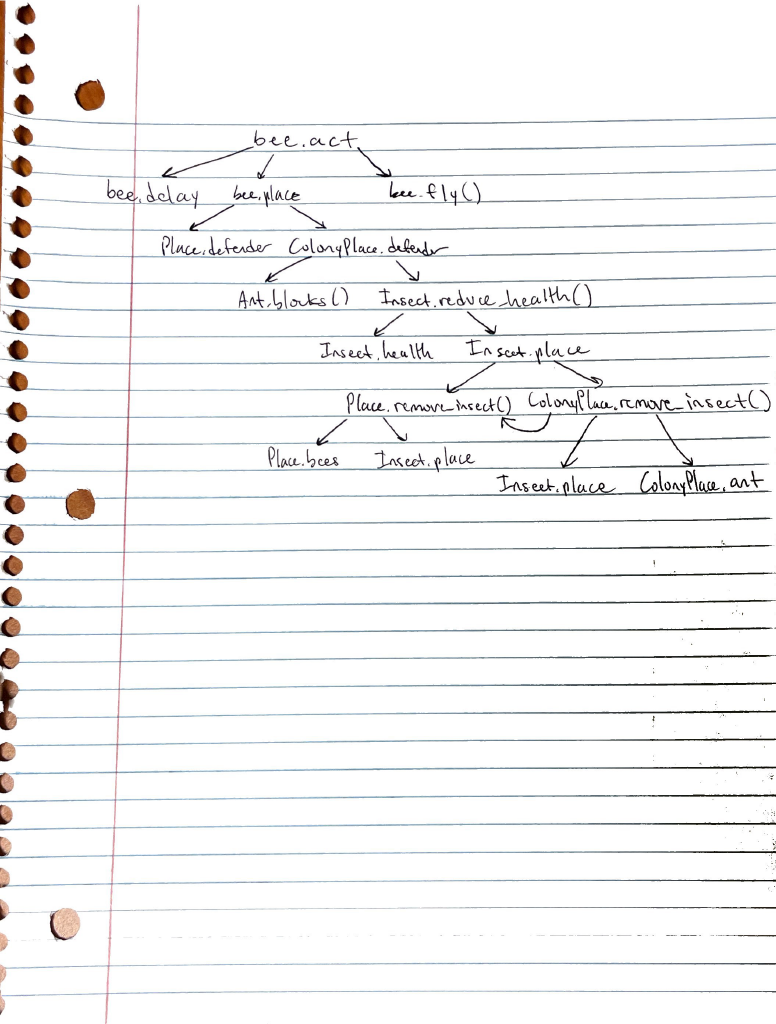 bee.act
bee.delay bee.place bee.fly()
Place.defender ColonyPlace.defender
Ant.blocks() Insect.reduce_health()
Insect.health Insect.place
Place.remove_insect() ColonyPlace.remove_insect()
Place.bees Insect.place
Insect.place ColonyPlace.ant